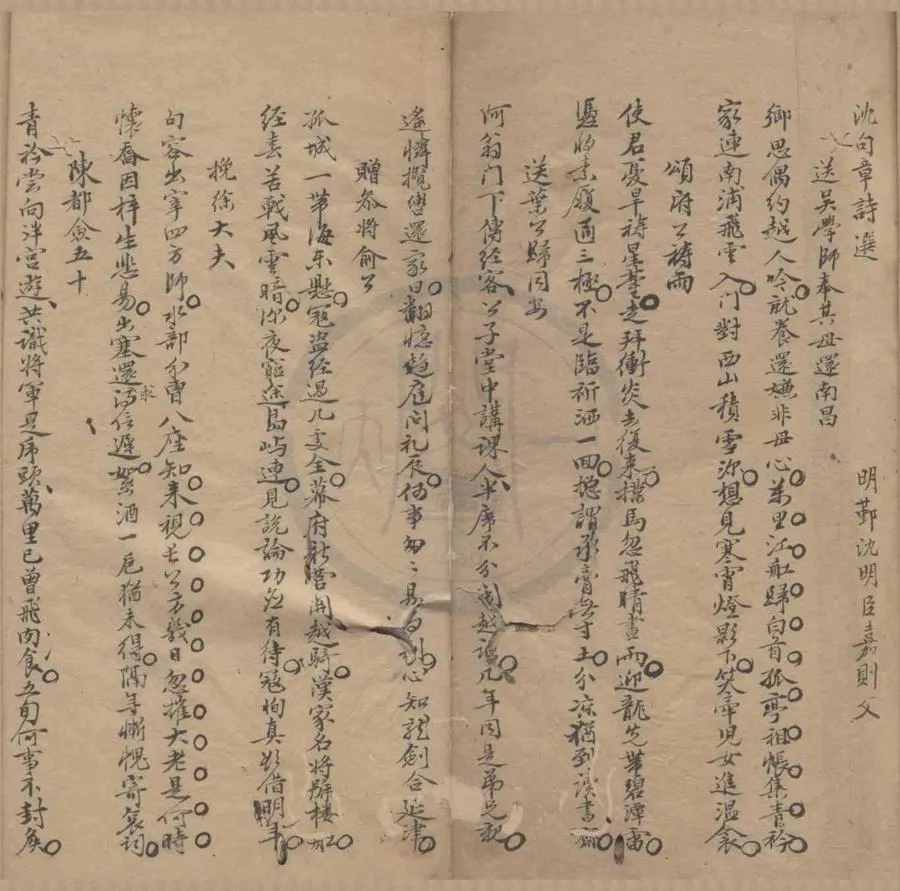 沈句章詩選
明鄞沈明臣嘉則父
送吳學師奉其母還南昌
鄉思偶約越人吟就養還嫌非母心萬里江舡歸白首孤亭祖帳集青衿
家連南浦飛雲入門對西山積雪深想見寒宵燈影下笑牽児女進温衾
頌府公禱雨
使君憂旱禱星壇走拜衝炎去復来摖馬忽飛晴晝雨迎龍先帶碧潭雷
憑将素履通三極不是臨祈洒一回揔謂承膏寸土分凉猶到讀書
送葉公歸同安
阿翁门下傳經客公子堂中講課人半席不分閩越几年同是弟兄親
遙憐攬轡還家日翻憶趨庭问礼辰何事匆〻易心知龍劍合延津
贈叅将俞公
孤城一带海东懸冦盗經過几变全幕府新營開越騎漢家名将辦楼舡
经春苦戰風雲暗深夜窮途島屿連見說論功应有待冦恂真欲借明年
挽徐大夫
句容出宰四方師水部分曹八座知来視长公方幾日忽摧大老是何時
懷喬因梓生悲易出塞還求信遲絮酒一卮猶未得隔年慚愧寄哀詞
陳都僉五十
青衿嘗向泮宮遊共識将軍是虎頭萬里已曾飛肉食五旬何事不封矦